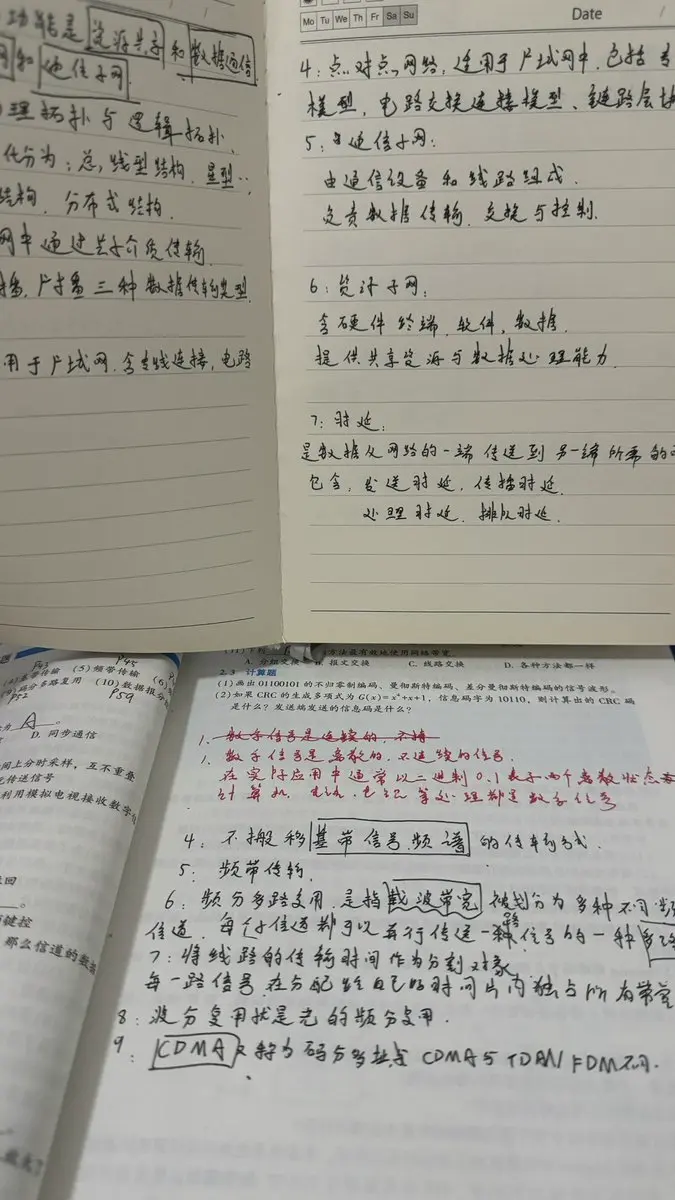 功能是资源共享和数据通信
网和通信子网
理拓扑与逻辑拓扑.
化分为:总线型结构.星型..
结构.分布式结构.
网中通过共享介质传输.
播.广播三种数据传输类型.
用于广域网.含专线连接,电路
Mo Tu We Th Fr Sa Su
Date
4:点对点网络,适用于广域网中.包括专
模型,电路交换连接模型、链路层
5:通信子网:
由通信设备和线路组成.
负责数据传输.交换与控制.
6:资源子网:
含硬件终端.软件,数据.
提供共享资源与数据处理能力.
7:时延:
是数据从网路的一端传送到另一端所需的
包含,发送时延.传播时延.
处理时延.排队时延.
题
P43 P45
基带传输 (5)频带传输 (6)
码分多路复用 (10)数据报分
P52 P59
为 A 。
D. 同步通信
间上分时采样,互不重叠
传送信号
利用模拟电视接收数字
回
键控
那么信道的数
方法最有效地使用网络带宽。
A. 分组交换 B. 报文交换 C. 线路交换 D. 各种方法都一样
2.3 计算题
(1)画出01100101的不归零制编码、曼彻斯特编码、差分曼彻斯特编码的信号波形。
(2)如果CRC的生成多项式为G(x)=x⁴+x+1,信息码字为10110,则计算出的CRC码
是什么?发送端发送的信息码是什么?
1. 数字信号是连续的,不
1. 数字信号是离散的,不连续的信号.
在实际应用中通常以二进制0.1表示两个离散状态
计算机 等处理都是数字信号
4:不搬移基带信号频谱的传输方式.
5:频带传输.
6:频分多路复用.是指载波带宽被划分为多种不同频
信道,每个子信道都可以并行传送一路信号的一种多路
7:将线路的传输时间作为分割对象
每一路信号在分配给自己的时间片内独占所有带宽
8:波分复用就是光的频分复用.
9:CDMA又称为码分多址 CDMA与TDM FDM不同.